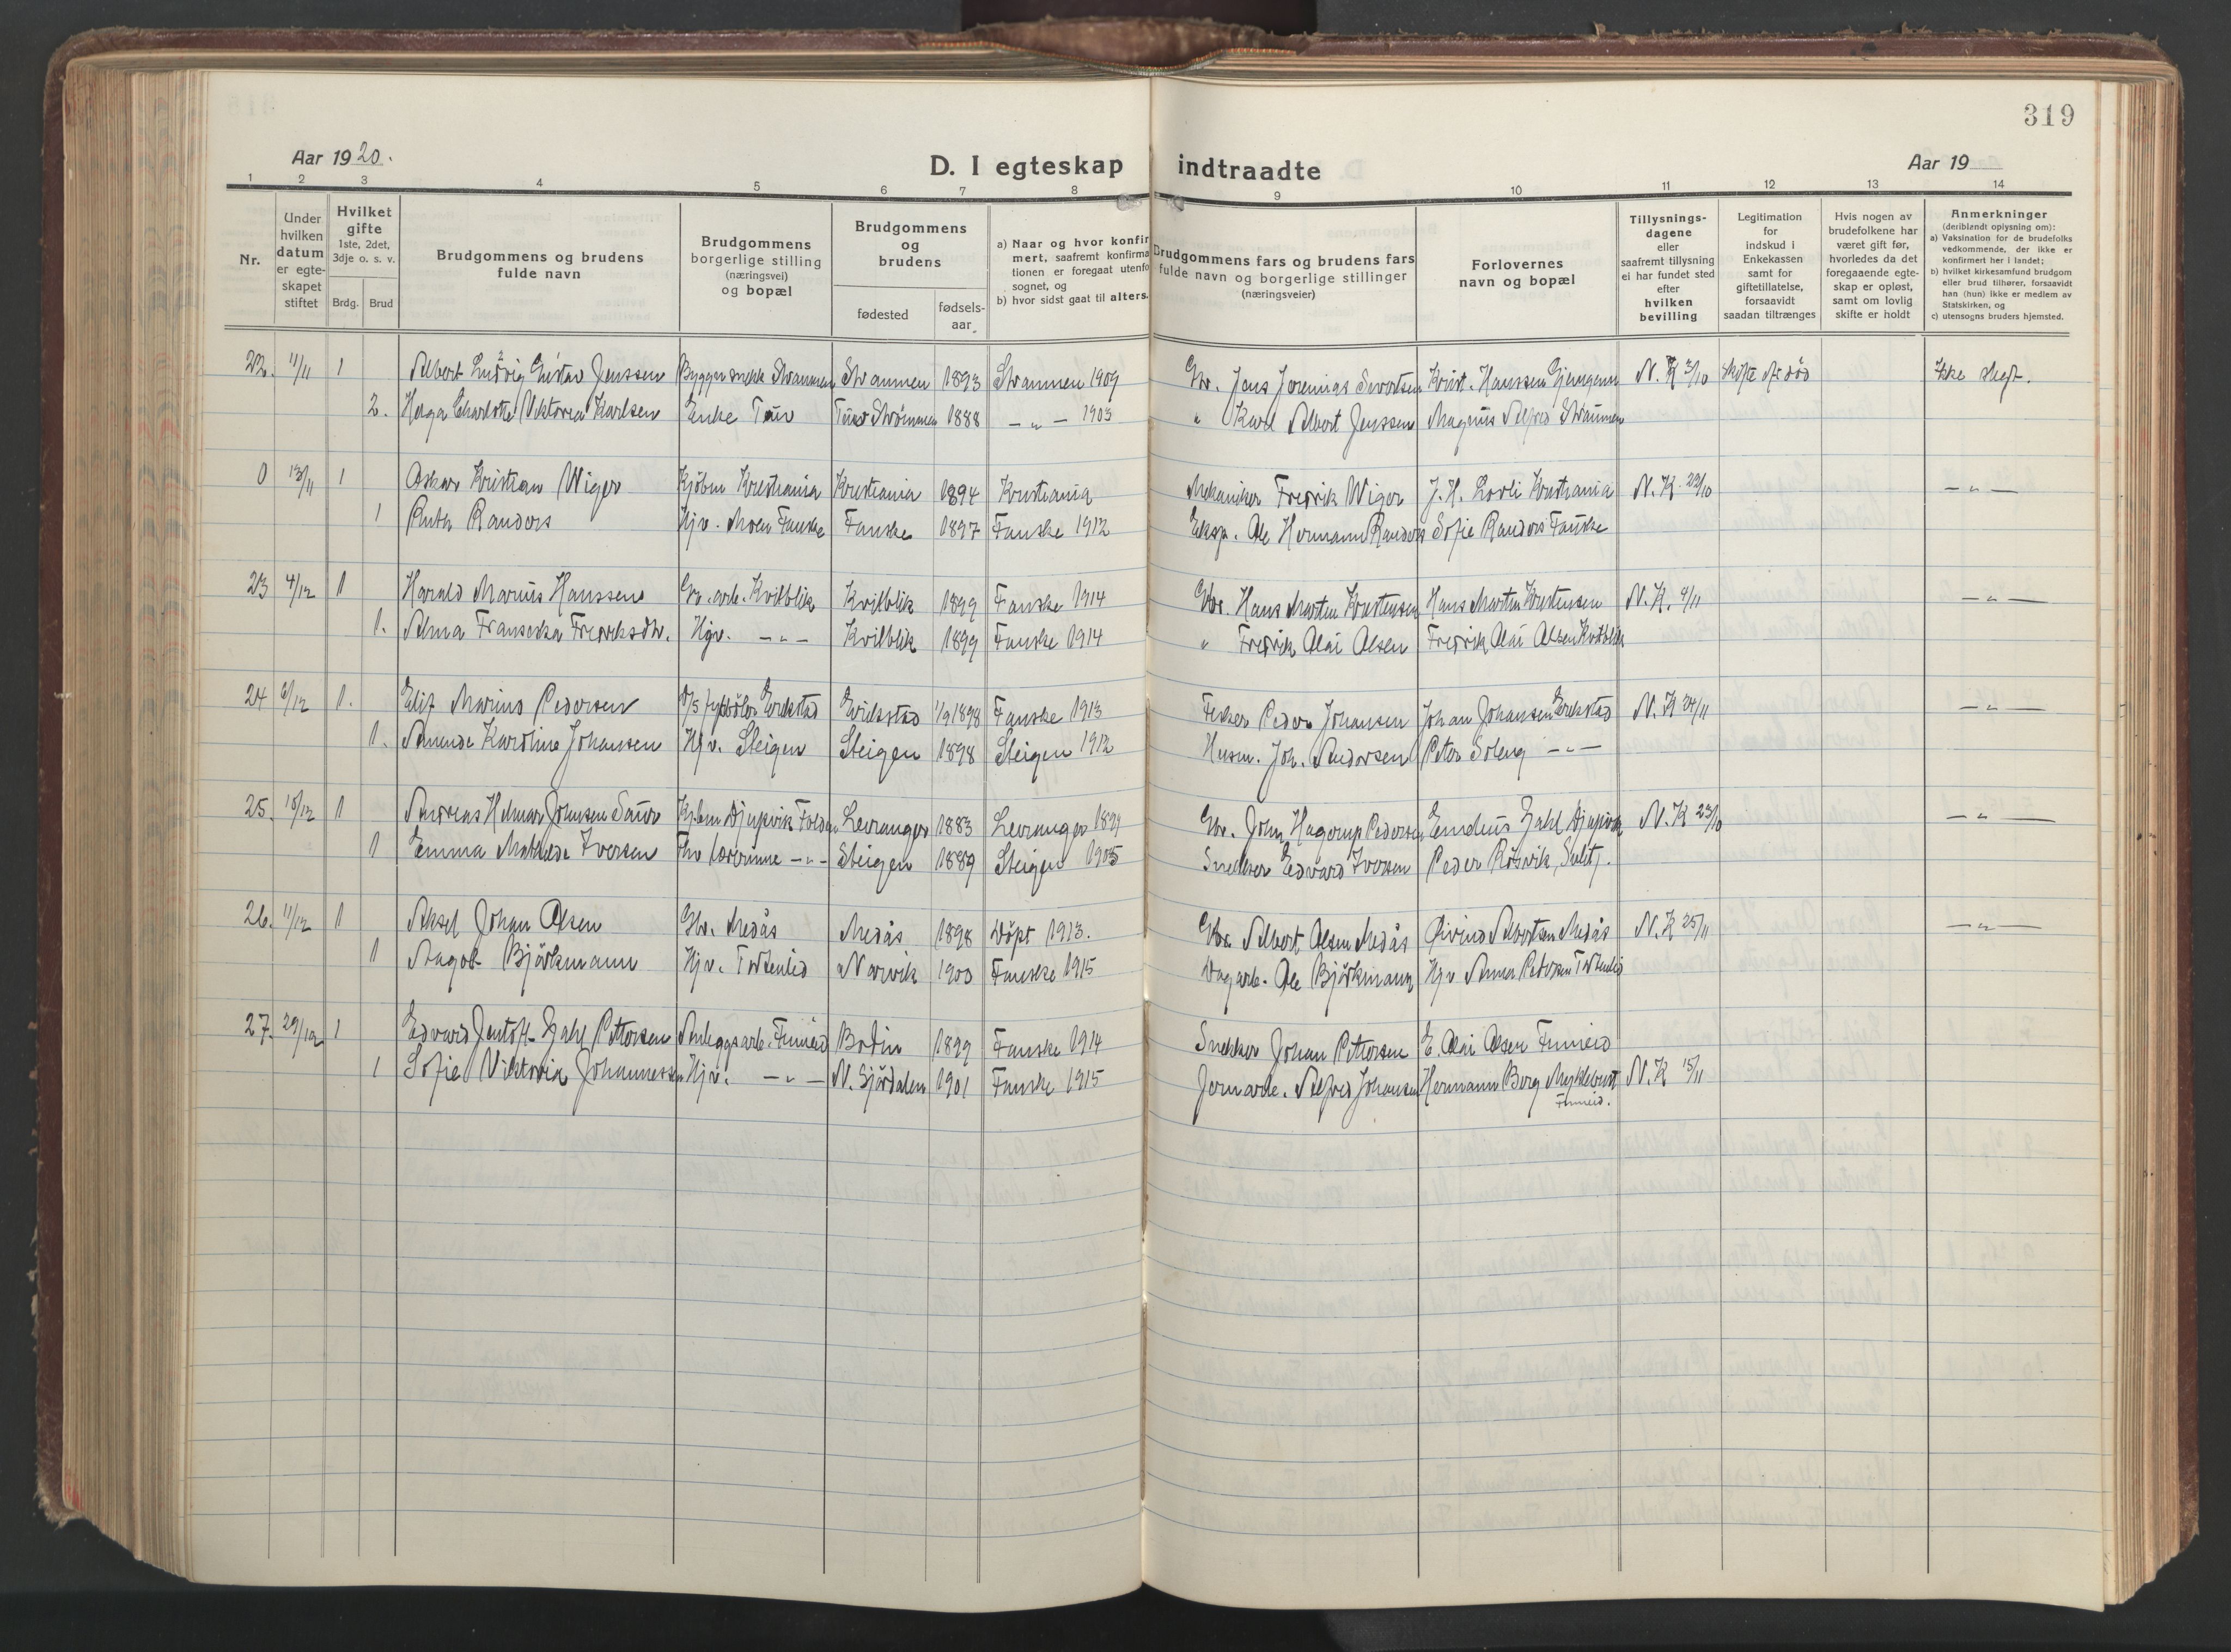 319
Aar 1920.
D. I egteskap indtraadte
Aar 19
1 2 3 4 5 6 7 8 9 10 11 12 13 14
Nr.
Under hvilken datum er egteskapet stiftet
Hvilket gifte 1ste, 2det, 3dje o. s. v.
Brdg. Brud
Brudgommens og brudens fulde navn
Brudgommens borgerlige stilling (næringsvei) og bopæl
Brudgommens og brudens
fødested
fødsels-aar
a) Naar og hvor konfirmert, saafremt konfirmationen er foregaat utenfo sognet, og
b) hvor sidst gaat til alters.
Brudgommens fars og brudens fars fulde navn og borgerlige stillinger (næringsveier)
Forlovernes navn og bopæl
Tillysnings-dagene eller saafremt tillysning ei har fundet sted efter hvilken bevilling
Legitimation for indskud i Enkekassen samt for giftetillatelse, forsaavidt saadan tiltrænges
Hvis nogen av brudefolkene har været gift før, hvorledes da det foregaaende egteskap er opløst, samt om lovlig skifte er holdt
Anmerkninger (deriblandt oplysning om):
a) Vaksination for de brudefolks vedkommende, der ikke er konfirmert her i landet;
b) hvilket kirkesamfund brudgom eller brud tilhører, forsaavidt han (hun) ikke er medlem av Statskirken, og
c) utensogns bruders hjemsted.
22. 11/11 1 Albert Ludvig Gustav Jenssen Straumen 1893 Straumen 1909 Gbr. Jens Jeremias Krist. Hanssen N. K skifte Ikke slegt.
2. Helga Charlotte Viktoria Karlsen Enke 1888 — " — 1903 " Karl Albert Jenssen Magnus Alfred Straumen
0 13/11 1 Oskar Kristian Wiger Kjøbm Kristiania Kristiania 1894 Kristiania Mekaniker Fredrik Wiger J. H. Kristiania N. K. 22/10 — " —
1 Ruth Randers Hjv. Moen Fauske Fauske 1897 Fauske 1912 Eksp. Ole Hermann Randers Sofie Randers Fauske
23 4/12 1 Harald Marius Hanssen Gr. arb. Kvilblik Kvilblik 1899 Fauske 1914 Gbr. Hans Martin Kristensen Hans Martin Kristensen N. K. 4/11 — " —
1. Alma Franseska Fredriksdtr. Hjv. — " — Kvilblik 1899 Fauske 1914 " Fredrik Olai Olsen Fredrik Olai Olsen Kvilblik
24 6/12 1. Elif Marius Pedersen Erikstad Erikstad 1/9 1898 Fauske 1913 Fisker Peder Johansen Johan Johansen Erikstad N. K 24/11 — " —
1. Amunda Karoline Johansen Hjv. Steigen Steigen 1898 Steigen 1912 Husm. Joh. Andersen Peter Soleng — " —
25. 10/12 1 Andreas Helmar Johnsen Djupvik Folden Leranger 1883 Leranger 1899 Gbr. John Hagerup Pedersen Emelius Zahl Djupvik N. K 23/10 — " —
1 Emma Mathilde Iversen Frv lærerinne — " — Steigen 1889 Steigen 1905 Snekker Edvard Iversen Peder Røsvik, Sulitj.
26. 11/12 1 Aksel Johan Olsen Gbr. Medås Medås 1898 Døpt 1913. Gbr. Albert Olsen Medås Øivind Albertsen Medås N. K 25/11 — " —
1 Aagot Bjørkmann Hjv. Tortenlid Narvik 1900 Fauske 1915 Dagarb. Ole Bjørkmann Hjv Anna Pedersen Tortenlid
27. 29/12 1 Edvard Jentoft Zahl Pettersen Anleggsarb. Finneid Bodin 1899 Fauske 1914 Snekker Johan Pettersen E. Olai Olsen Finneid
1 Sofie Viktoria Johannessen Hjv. — " — N. Sjørdalen 1901 Fauske 1915 Jernarb. Alfred Johansen Hermann Berg Myklebust N. K 15/11
Finneid.